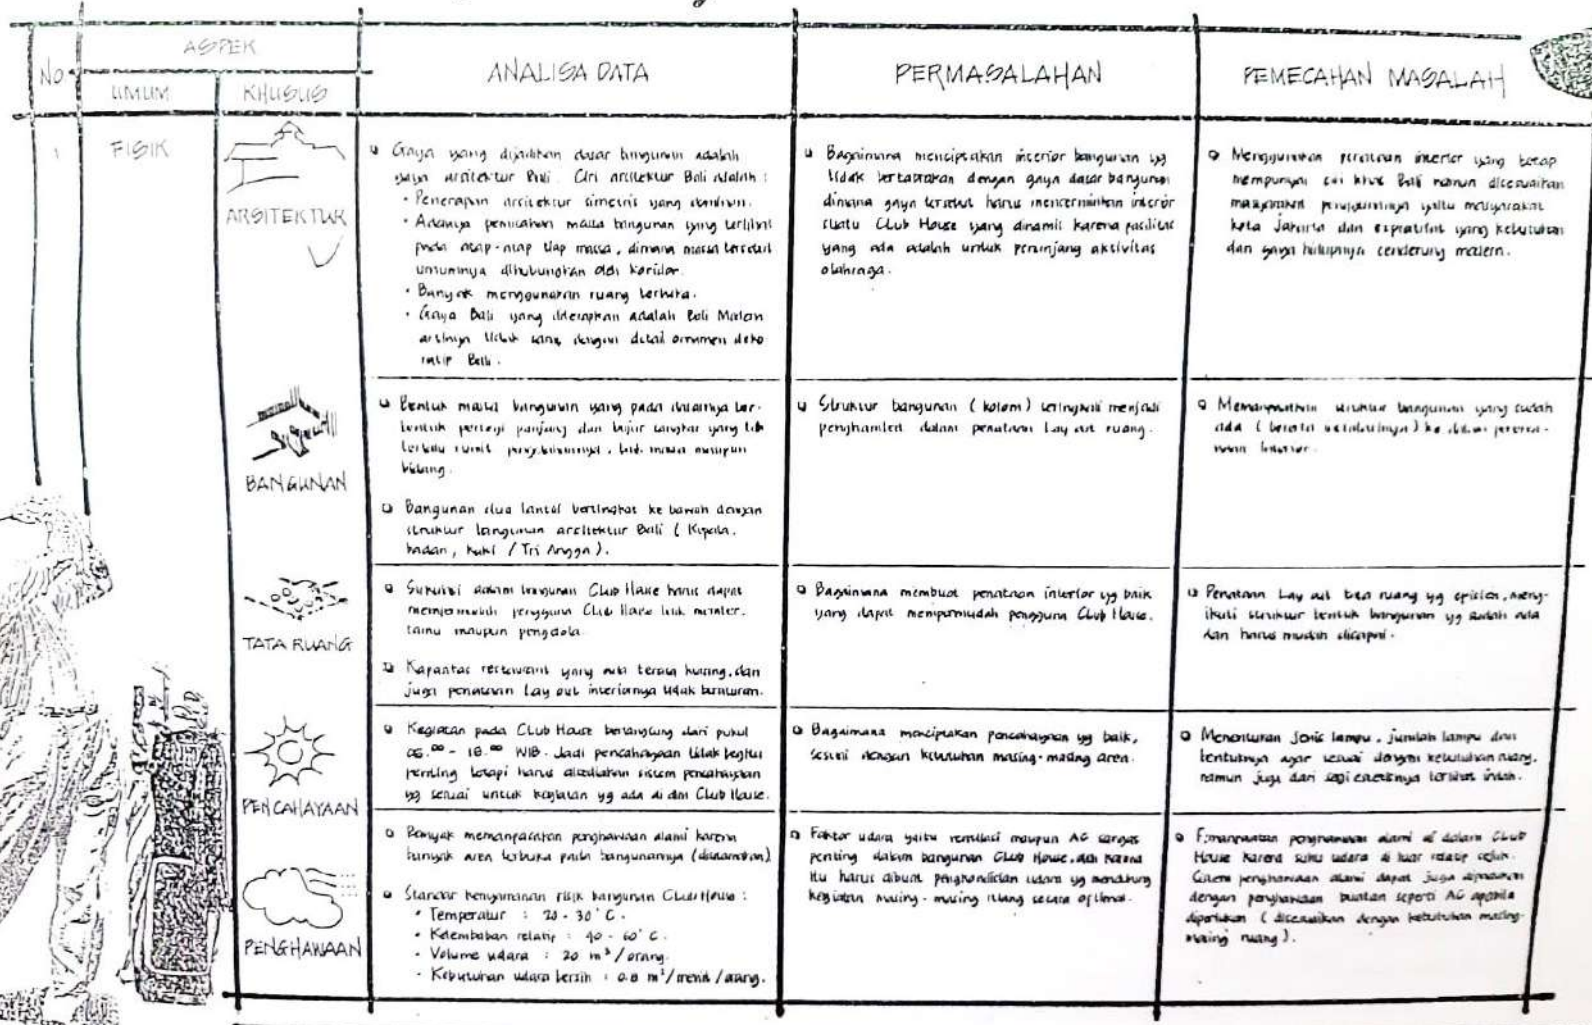 No
ASPEK
UMUM
KHUSUS
ANALISA DATA
PERMASALAHAN
PEMECAHAN MASALAH
1
FISIK
ARSITEKTUR
Gaya yang dijadikan dasar bangunan adalah
gaya arsitektur Bali. Ciri arsitektur Bali adalah :
• Penerapan arsitektur simetris yang
• Adanya pemisahan massa bangunan yang terlihat
pada atap-atap tiap massa, dimana massa tersebut
umumnya dihubungkan oleh koridor.
• Banyak menggunakan ruang terbuka.
• Gaya Bali yang diterapkan adalah Bali Modern
artinya tidak dengan detail ornamen deko
ratif Bali.
Bagaimana menciptakan interior bangunan yg
tidak bertabrakan dengan gaya dasar bangunan
dimana gaya tersebut harus mencerminkan interior
suatu Club House yang dinamis karena fasilitas
yang ada adalah untuk penunjang aktivitas
olahraga.
Menggunakan penataan interior yang tetap
mempunyai ciri khas Bali namun disesuaikan
masyarakat pengunjungnya yaitu masyarakat
kota Jakarta dan expratriat yang kebutuhan
dan gaya hidupnya cenderung modern.
BANGUNAN
Bentuk massa bangunan yang pada dasarnya ber-
bentuk persegi panjang dan bujur sangkar yang tdk
terlalu rumit massa maupun
bidang.
Bangunan dua lantai bertingkat ke bawah dengan
struktur bangunan arsitektur Bali ( Kepala,
badan, kaki / Tri Angga ).
Struktur bangunan ( kolom ) seringkali menjadi
penghambat dalam penataan Lay out ruang.
Memanfaatkan struktur bangunan yang sudah
ada ( ) ke dalam
interior.
TATA RUANG
Sirkulasi dalam bangunan Club House harus dapat
mempermudah pengguna Club House baik member,
tamu maupun pengelola.
Kapasitas restaurant yang ada terasa kurang, dan
juga penataan Lay out interiornya tidak beraturan.
Bagaimana membuat penataan interior yg baik
yang dapat mempermudah pengguna Club House.
Penataan Lay out tata ruang yg efisien, meng-
ikuti struktur bentuk bangunan yg sudah ada
dan harus mudah dicapai.
PENCAHAYAAN
Kegiatan pada Club House berlangsung dari pukul
06.00 - 18.00 WIB. Jadi pencahayaan tidak begitu
penting tetapi harus disediakan sistem pencahayaan
yg sesuai untuk kegiatan yg ada di dlm Club House.
Bagaimana menciptakan pencahayaan yg baik,
sesuai dengan kebutuhan masing-masing area.
Menentukan jenis lampu, jumlah lampu dan
bentuknya agar sesuai dengan kebutuhan ruang,
namun juga dari segi estetisnya terlihat indah.
PENGHAWAAN
Banyak memanfaatkan penghawaan alami karena
banyak area terbuka pada bangunannya
Standar kenyamanan fisik bangunan Club House :
• Temperatur : 20 - 30°C.
• Kelembaban relatif : 40 - 60°C.
• Volume udara : 20 m³/orang.
• Kebutuhan udara bersih : 0.8 m³/menit/orang.
Faktor udara yaitu ventilasi maupun AC sangat
penting dalam bangunan Club House, oleh karena
itu harus dibuat pengkondisian udara yg mendukung
kegiatan masing-masing ruang secara optimal.
Pemanfaatan penghawaan alami di dalam Club
House karena suhu udara di luar relatif sejuk.
Sistem penghawaan alami dapat juga
dengan penghawaan buatan seperti AC apabila
diperlukan ( disesuaikan dengan kebutuhan masing-
masing ruang ).